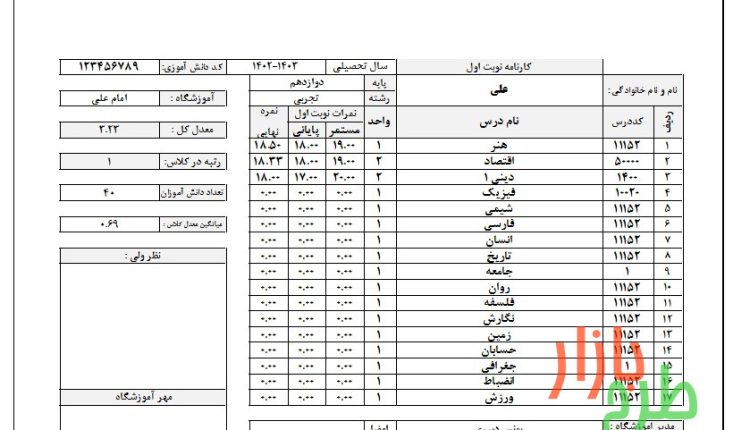 کارنامه نوبت اول سال تحصیلی ۱۴۰۲-۱۴۰۳ کد دانش آموزی: ۱۲۳۴۵۶۷۸۹
نام و نام خانوادگی: علی پایه دوازدهم
رشته تجربی آموزشگاه : امام علی
ردیف کددرس نام درس واحد نمرات نوبت اول نمره نهایی
مستمر پایانی معدل کل : ۲.۲۳
۱ ۱۱۱۵۲ هنر ۱ ۱۹.۰۰ ۱۸.۰۰ ۱۸.۵۰
۲ ۵۰۰۰۰ اقتصاد ۲ ۱۹.۰۰ ۱۸.۰۰ ۱۸.۳۳ رتبه در کلاس: ۱
۳ ۱۴۰۰ دینی ۱ ۲ ۲۰.۰۰ ۱۷.۰۰ ۱۸.۰۰
۴ ۱۰۰۲۰ فیزیک ۱ ۰.۰۰ ۰.۰۰ ۰.۰۰ تعداد دانش آموزان ۴۰
۵ ۱۱۱۵۲ شیمی ۱ ۰.۰۰ ۰.۰۰ ۰.۰۰
۶ ۱۱۱۵۲ فارسی ۱ ۰.۰۰ ۰.۰۰ ۰.۰۰ میانگین معدل کلاس : ۰.۶۹
۷ ۱۱۱۵۲ انسان ۱ ۰.۰۰ ۰.۰۰ ۰.۰۰
۸ ۱۱۱۵۲ تاریخ ۱ ۰.۰۰ ۰.۰۰ ۰.۰۰ نظر ولی :
۹ ۱ جامعه ۱ ۰.۰۰ ۰.۰۰ ۰.۰۰
۱۰ ۱۱۱۵۲ روان ۱ ۰.۰۰ ۰.۰۰ ۰.۰۰
۱۱ ۱۱۱۵۲ فلسفه ۱ ۰.۰۰ ۰.۰۰ ۰.۰۰
۱۲ ۱۱۱۵۲ نگارش ۱ ۰.۰۰ ۰.۰۰ ۰.۰۰
۱۳ ۱۱۱۵۲ زمین ۱ ۰.۰۰ ۰.۰۰ ۰.۰۰
۱۴ ۱۱۱۵۲ حسابان ۱ ۰.۰۰ ۰.۰۰ ۰.۰۰
۱۵ ۱ جغرافی ۱ ۰.۰۰ ۰.۰۰ ۰.۰۰
۱۶ ۱۱۱۵۲ انضباط ۱ ۰.۰۰ ۰.۰۰ ۰.۰۰
۱۷ ۱۱۱۵۲ ورزش ۱ ۰.۰۰ ۰.۰۰ ۰.۰۰ مهر آموزشگاه
مدیر آموزشگاه :
بازار
طرح